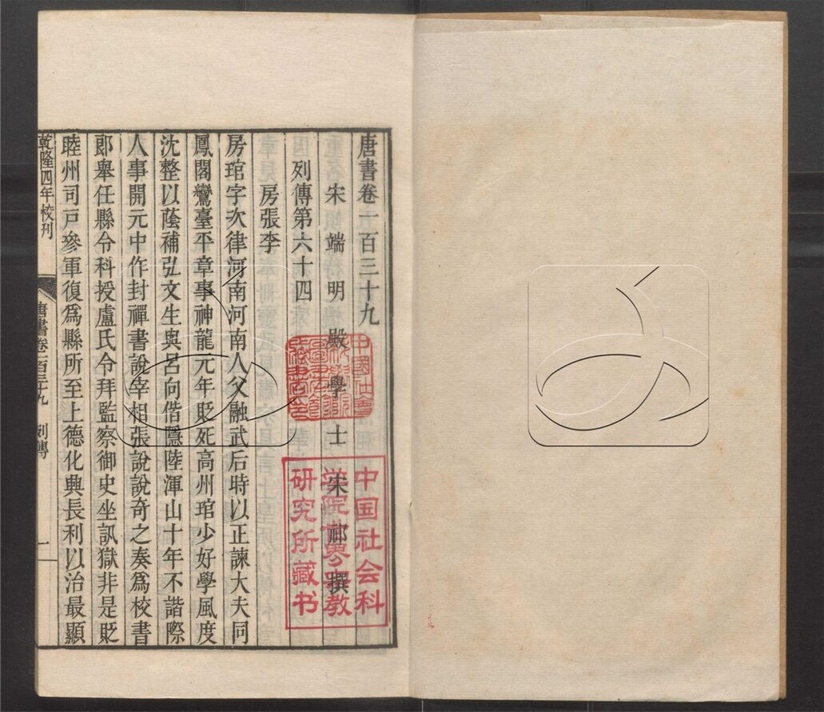 唐書卷一百三十九
宋端明殿學士宋祁撰
列傳第六十四
房張李
房琯字次律河南河南人父融武后時以正諫大夫同
鳳閣鸞臺平章事神龍元年貶死高州琯少好學風度
沈整以蔭補弘文生與呂向偕隱陸渾山十年不諧際
人事開元中作封禪書說宰相張說說奇之奏爲校書
郎舉任縣令科授盧氏令拜監察御史坐訊獄非是貶
睦州司戶參軍復爲縣所至上德化興長利以治最顯
乾隆四年校刊
唐書卷一百三十九
列傳
一
中国社会科
学院世界宗教
研究所藏书